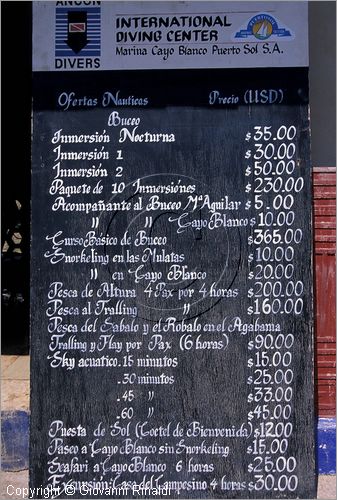 ANCON
DIVERS
INTERNATIONAL
DIVING CENTER
Marina Cayo Blanco Puerto Sol S.A.
Ofertas Nauticas Precio (USD)
Buceo
Inmersión Nocturna $35.00
Inmersión 1 $30.00
Inmersión 2 $50.00
Paquete de 10 Inmersiónes $230.00
Acompañante al Buceo Mª Aguilar $5.00
" " Cayo Blanco $10.00
Curso Básico de Buceo $365.00
Snorkeling en las Mulatas $10.00
" en Cayo Blanco $20.00
Pesca de Altura 4 Pax por 4 horas $200.00
Pesca al Tralling " $160.00
Pesca del Sabalo y el Robalo en el Agabama
Tralling y Flay por Pax (6 horas) $90.00
Sky acuatico. 15 minutos $15.00
. 30 minutos $25.00
. 45 " $33.00
. 60 " $45.00
Puesta de Sol (Coctel de Bienvenida) $12.00
Paseo a Cayo Blanco sin Snorkeling $15.00
Seafari a Cayo Blanco 6 horas $25.00
Excursion: Casa del Campesino 4 horas $30.00
Copyright © Giovanni Rinaldi